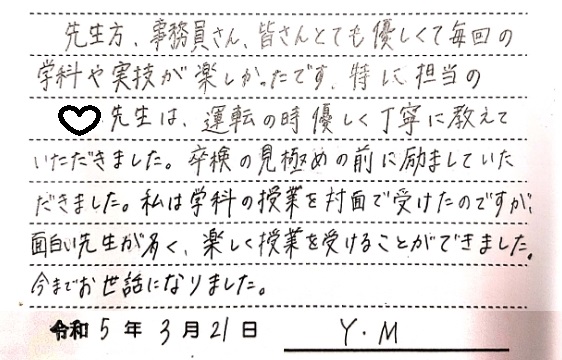 先生方、事務員さん、皆さんとても優しくて毎回の
学科や実技が楽しかったです。特に担当の
♡先生は、運転の時優しく丁寧に教えて
いただきました。卒検の見極めの前に励ましていた
だきました。私は学科の授業を対面で受けたのですが、
面白い先生が多く、楽しく授業を受けることができました。
今までお世話になりました。
令和5年3月21日 Y・M